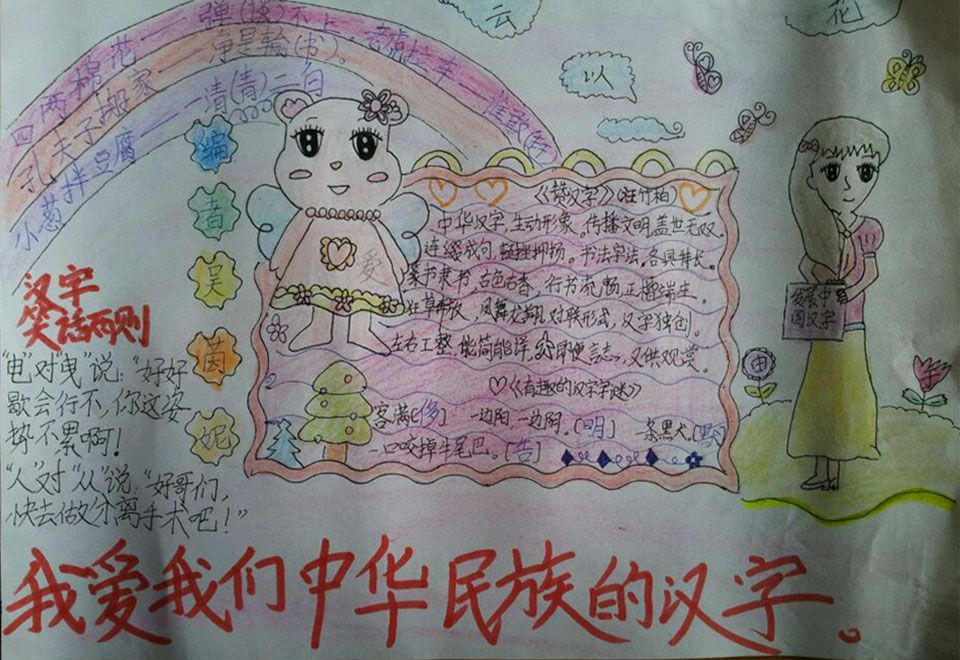 云
花
以
四两棉花——弹(谈)不上。老虎拉车——谁敢(赶)
孔夫子搬家——净是输(书)。
小葱拌豆腐——一清(青)二白
编
者
吴
茵
妮
汉字
笑话两则
"电"对"曳"说："好好
歇会行不,你这姿
势不累啊!
"人"对"从"说："好哥们,
快去做分离手术吧！"
爱
《赞汉字》(汪竹柏
中华汉字,生动形象,传播文明,盖世无双.
连缀成句,抑扬。书法字法,各具井长。
篆书隶书,古色古香,行书流畅,正楷端庄。
狂草奔放,凤舞龙翔,对联形式,汉字独创。
左右工整,能简能详,即便言志,又供观赏。
♡《有趣的汉字字谜》
客满[侈] 一边阳一边阴。[明] 一条黑犬。[默]
一口咬掉牛尾巴。[告]
发展中
国汉字
由
我爱我们中华民族的汉字。